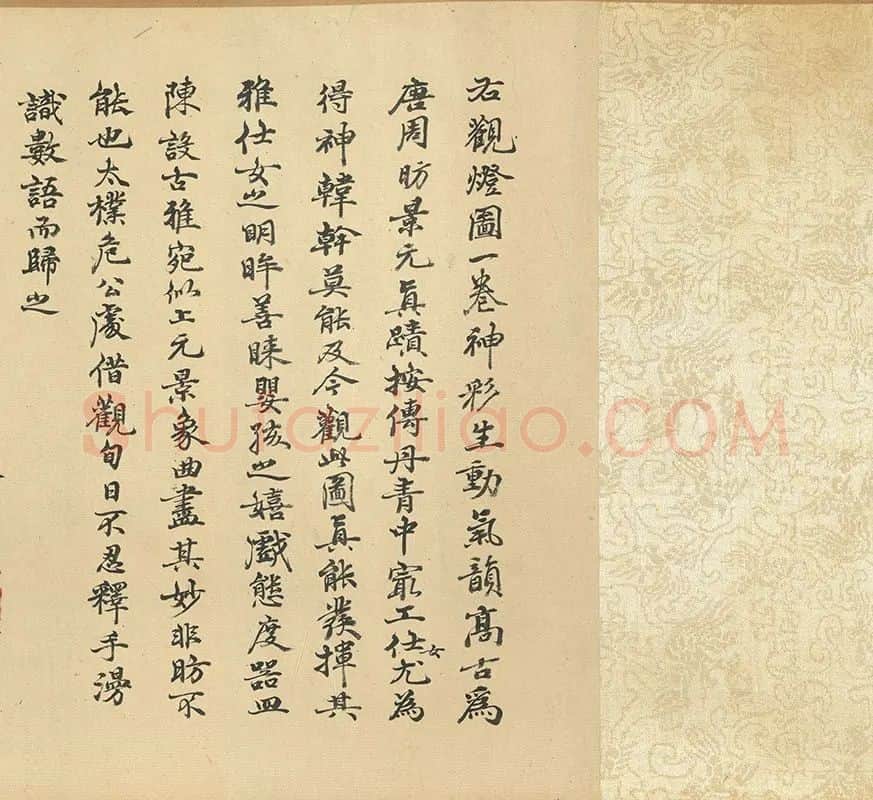 右觀燈圖一卷神彩生動氣韻高古爲
唐周昉景元眞蹟按傳丹青中寂工仕女尤為
得神韓幹莫能及今觀此圖眞能發揮其
雅仕女之明眸善睞嬰孩之嬉戲態度器皿
陳設古雅宛似上元景象曲盡其妙非昉不
能也太樸危公處借觀旬日不忍釋手漫
識數語而歸之
Shufaziliao.COM